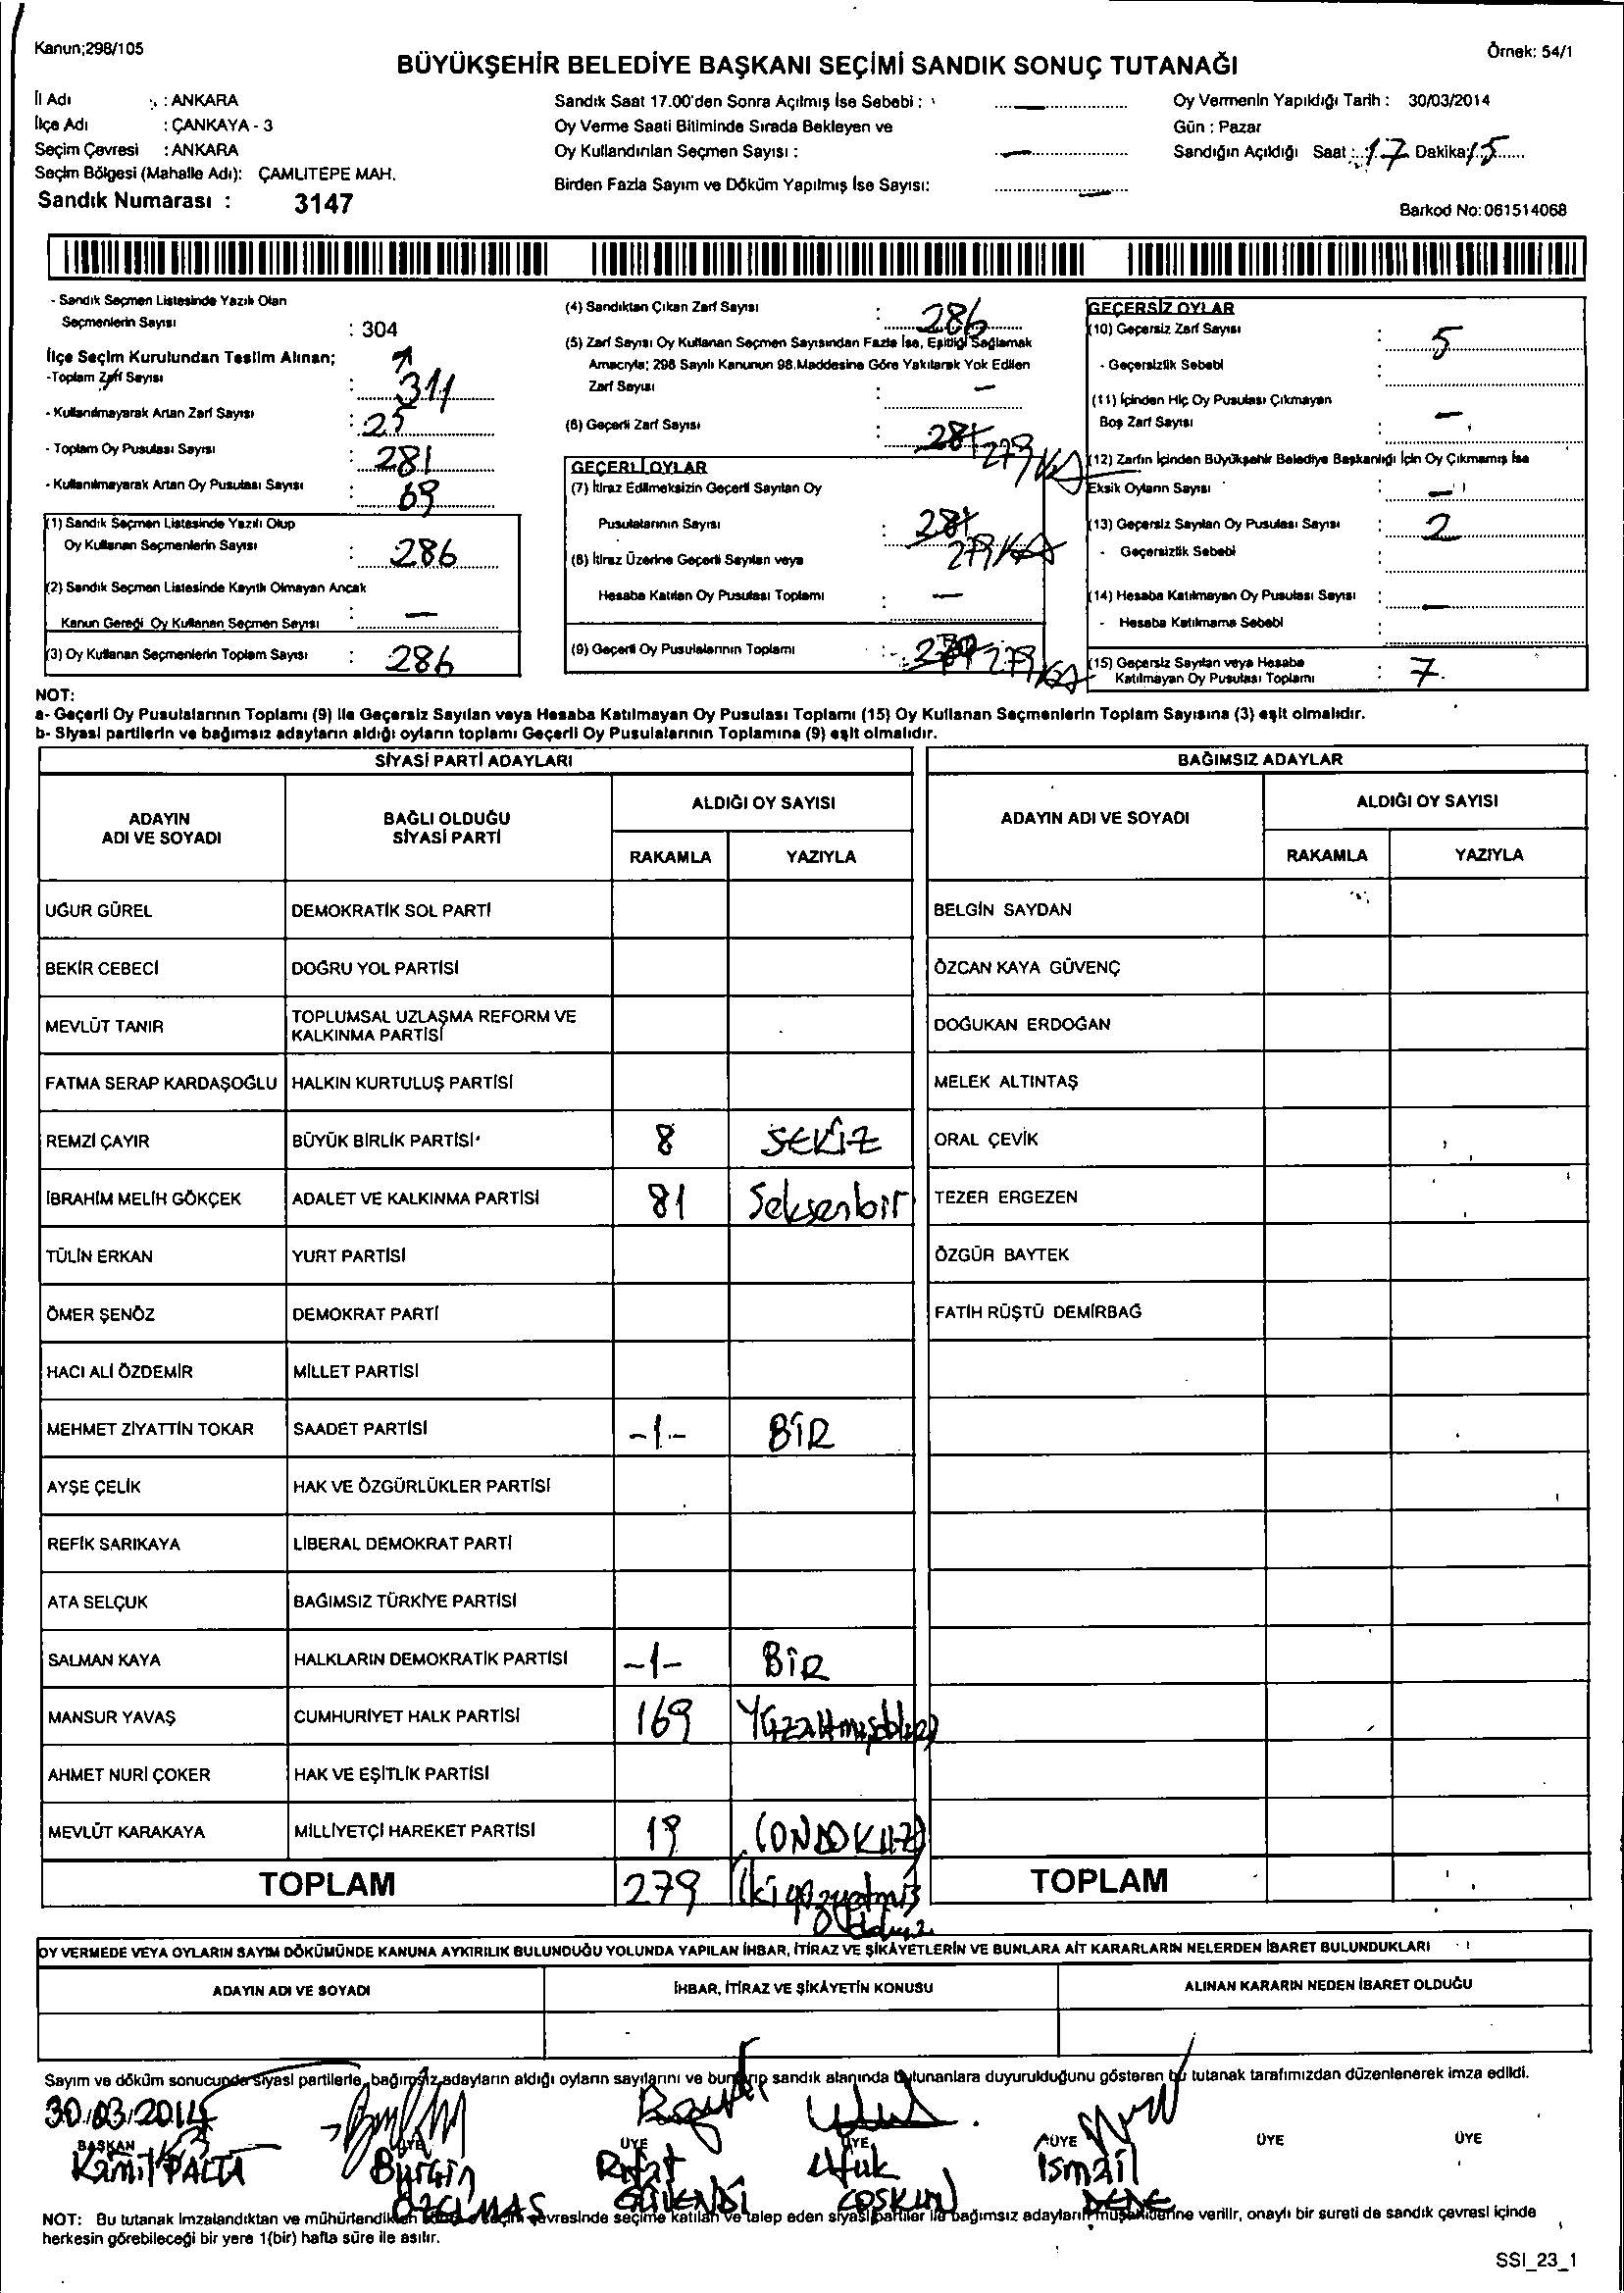 Kanun;298/105
Örnek: 54/1
BÜYÜKŞEHİR BELEDİYE BAŞKANI SEÇİMİ SANDIK SONUÇ TUTANAĞI
İl Adı : ANKARA
İlçe Adı : ÇANKAYA - 3
Seçim Çevresi : ANKARA
Seçim Bölgesi (Mahalle Adı): ÇAMLITEPE MAH.
Sandık Numarası : 3147
Sandık Saat 17.00'den Sonra Açılmış İse Sebebi : —
Oy Verme Saati Bitiminde Sırada Bekleyen ve
Oy Kullandırılan Seçmen Sayısı : —
Birden Fazla Sayım ve Döküm Yapılmış İse Sayısı: —
Oy Vermenin Yapıldığı Tarih : 30/03/2014
Gün : Pazar
Sandığın Açıldığı Saat : 17 Dakika 15
Barkod No:061514068
- Sandık Seçmen Listesinde Yazılı Olan
Seçmenlerin Sayısı : 304
İlçe Seçim Kurulundan Teslim Alınan;
-Toplam Zarf Sayısı : 311
- Kullanılmayarak Artan Zarf Sayısı : 25
- Toplam Oy Pusulası Sayısı : 281
- Kullanılmayarak Artan Oy Pusulası Sayısı : 69
(1) Sandık Seçmen Listesinde Yazılı Olup
Oy Kullanan Seçmenlerin Sayısı : 286
(2) Sandık Seçmen Listesinde Kayıtlı Olmayan Ancak
Kanun Gereği Oy Kullanan Seçmen Sayısı : —
(3) Oy Kullanan Seçmenlerin Toplam Sayısı : 286
(4) Sandıktan Çıkan Zarf Sayısı : 286
(5) Zarf Sayısı Oy Kullanan Seçmen Sayısından Fazla İse, Eşitliği Sağlamak
Amacıyla; 298 Sayılı Kanunun 98.Maddesine Göre Yakılarak Yok Edilen
Zarf Sayısı : —
(6) Geçerli Zarf Sayısı : 281 279
GEÇERLİ OYLAR
(7) İtiraz Edilmeksizin Geçerli Sayılan Oy
Pusulalarının Sayısı : 281 279
(8) İtiraz Üzerine Geçerli Sayılan veya
Hesaba Katılan Oy Pusulası Toplamı : —
(9) Geçerli Oy Pusulalarının Toplamı : 279
GEÇERSİZ OYLAR
(10) Geçersiz Zarf Sayısı : 5
- Geçersizlik Sebebi :
(11) İçinden Hiç Oy Pusulası Çıkmayan
Boş Zarf Sayısı : —
(12) Zarfın İçinden Büyükşehir Belediye Başkanlığı İçin Oy Çıkmamış İse
Eksik Oyların Sayısı : —
(13) Geçersiz Sayılan Oy Pusulası Sayısı : 2
- Geçersizlik Sebebi :
(14) Hesaba Katılmayan Oy Pusulası Sayısı : —
- Hesaba Katılmama Sebebi :
(15) Geçersiz Sayılan veya Hesaba
Katılmayan Oy Pusulası Toplamı : 7
NOT:
a- Geçerli Oy Pusulalarının Toplamı (9) ile Geçersiz Sayılan veya Hesaba Katılmayan Oy Pusulası Toplamı (15) Oy Kullanan Seçmenlerin Toplam Sayısına (3) eşit olmalıdır.
b- Siyasi partilerin ve bağımsız adayların aldığı oyların toplamı Geçerli Oy Pusulalarının Toplamına (9) eşit olmalıdır.
SİYASİ PARTİ ADAYLARI BAĞIMSIZ ADAYLAR
ADAYIN ADI VE SOYADI BAĞLI OLDUĞU SİYASİ PARTİ ALDIĞI OY SAYISI ADAYIN ADI VE SOYADI ALDIĞI OY SAYISI
RAKAMLA YAZIYLA RAKAMLA YAZIYLA
UĞUR GÜREL DEMOKRATİK SOL PARTİ BELGİN SAYDAN
BEKİR CEBECİ DOĞRU YOL PARTİSİ ÖZCAN KAYA GÜVENÇ
MEVLÜT TANIR TOPLUMSAL UZLAŞMA REFORM VE KALKINMA PARTİSİ DOĞUKAN ERDOĞAN
FATMA SERAP KARDAŞOĞLU HALKIN KURTULUŞ PARTİSİ MELEK ALTINTAŞ
REMZİ ÇAYIR BÜYÜK BİRLİK PARTİSİ 8 SEKİZ ORAL ÇEVİK
İBRAHİM MELİH GÖKÇEK ADALET VE KALKINMA PARTİSİ 81 Seksenbir TEZER ERGEZEN
TÜLİN ERKAN YURT PARTİSİ ÖZGÜR BAYTEK
ÖMER ŞENÖZ DEMOKRAT PARTİ FATİH RÜŞTÜ DEMİRBAĞ
HACI ALİ ÖZDEMİR MİLLET PARTİSİ
MEHMET ZİYATTİN TOKAR SAADET PARTİSİ -1- BİR
AYŞE ÇELİK HAK VE ÖZGÜRLÜKLER PARTİSİ
REFİK SARIKAYA LİBERAL DEMOKRAT PARTİ
ATA SELÇUK BAĞIMSIZ TÜRKİYE PARTİSİ
SALMAN KAYA HALKLARIN DEMOKRATİK PARTİSİ -1- BİR
MANSUR YAVAŞ CUMHURİYET HALK PARTİSİ 169 Yüzaltmışdokuz
AHMET NURİ ÇOKER HAK VE EŞİTLİK PARTİSİ
MEVLÜT KARAKAYA MİLLİYETÇİ HAREKET PARTİSİ 19 (ONDOKUZ)
TOPLAM 279 İkiyüzyetmiş dokuz TOPLAM
OY VERMEDE VEYA OYLARIN SAYIM DÖKÜMÜNDE KANUNA AYKIRILIK BULUNDUĞU YOLUNDA YAPILAN İHBAR, İTİRAZ VE ŞİKÂYETLERİN VE BUNLARA AİT KARARLARIN NELERDEN İBARET BULUNDUKLARI
ADAYIN ADI VE SOYADI İHBAR, İTİRAZ VE ŞİKÂYETİN KONUSU ALINAN KARARIN NEDEN İBARET OLDUĞU
Sayım ve döküm sonucunda siyasi partilerle, bağımsız adayların aldığı oyların sayılarını ve bunların sandık alanında bulunanlara duyurulduğunu gösteren bu tutanak tarafımızdan düzenlenerek imza edildi.
30.03.2014
BAŞKAN ÜYE ÜYE ÜYE ÜYE ÜYE ÜYE
Kamil PALTA Burçin ÖZÇIMAS Rıfat GÜVENDİ Ufuk COŞKUN İsmail DEDE
NOT: Bu tutanak imzalandıktan ve mühürlendikten sonra o seçim çevresinde seçime katılan ve talep eden siyasi partiler ile bağımsız adayların müşahitlerine verilir, onaylı bir sureti de sandık çevresi içinde
herkesin görebileceği bir yere 1(bir) hafta süre ile asılır.
SSI_23_1